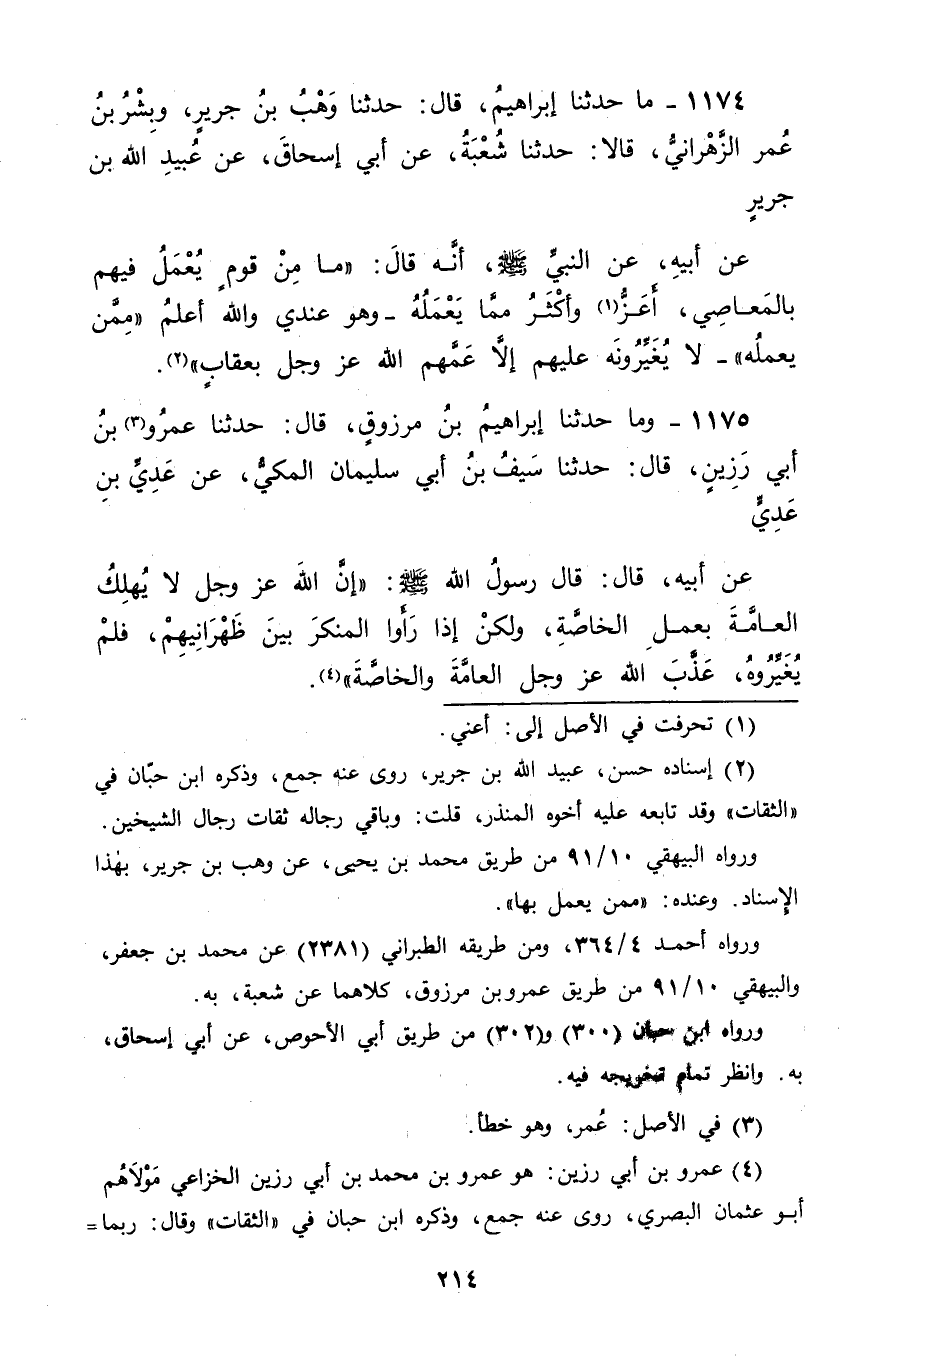 ١١٧٤ ـ ما حدثنا إبراهيمُ، قال: حدثنا وَهْبُ بنُ جريرٍ، وبِشْرُ بنُ
عُمر الزَّهْرانيُّ، قالا: حدثنا شُعْبَةُ، عن أبي إسحاقَ، عن عُبيدِ الله بن
جريرٍ
عن أبيهِ، عن النبيِّ ﷺ، أنَّه قالَ: «ما مِنْ قومٍ يُعْمَلُ فيهم
بالمَعاصِي، أَعَزُّ(١) وأكْثَرُ ممَّا يَعْمَلُهُ ـ وهو عندي والله أعلمُ «مِمَّن
يعملُه» ـ لا يُغَيِّرُونَه عليهم إلاَّ عَمَّهم الله عز وجل بعقابٍ»(٢).
١١٧٥ ـ وما حدثنا إبراهيمُ بنُ مرزوقٍ، قال: حدثنا عمرُو(٣) بنُ
أبي رَزِينٍ، قال: حدثنا سَيفُ بنُ أبي سليمان المكيُّ، عن عَدِيِّ بنِ
عَدِيٍّ
عن أبيه، قال: قال رسولُ الله ﷺ: «إنَّ اللهَ عز وجل لا يُهلِكُ
العامَّةَ بعملِ الخاصَّةِ، ولكنْ إذا رَأَوا المنكرَ بينَ ظَهْرَانِيهِمْ، فلمْ
يُغَيِّرُوهُ، عَذَّبَ الله عز وجل العامَّةَ والخاصَّةَ»(٤).
(١) تحرفت في الأصل إلى: أعني.
(٢) إسناده حسن، عبيد الله بن جرير، روى عنه جمع، وذكره ابن حبّان في
«الثقات» وقد تابعه عليه أخوه المنذر، قلت: وباقي رجاله ثقات رجال الشيخين.
ورواه البيهقي ٩١/١٠ من طريق محمد بن يحيى، عن وهب بن جرير، بهٰذا
الإسناد. وعنده: «ممن يعمل بها».
ورواه أحمد ٣٦٤/٤، ومن طريقه الطبراني (٢٣٨١) عن محمد بن جعفر،
والبيهقي ٩١/١٠ من طريق عمرو بن مرزوق، كلاهما عن شعبة، به.
ورواه ابن حبان (٣٠٠) و(٣٠٢) من طريق أبي الأحوص، عن أبي إسحاق،
به. وانظر تمام تخريجه فيه.
(٣) في الأصل: عُمر، وهو خطأ.
(٤) عمرو بن أبي رزين: هو عمرو بن محمد بن أبي رزين الخزاعي مَوْلَاهُم
أبو عثمان البصري، روى عنه جمع، وذكره ابن حبان في «الثقات» وقال: ربما =
٢١٤